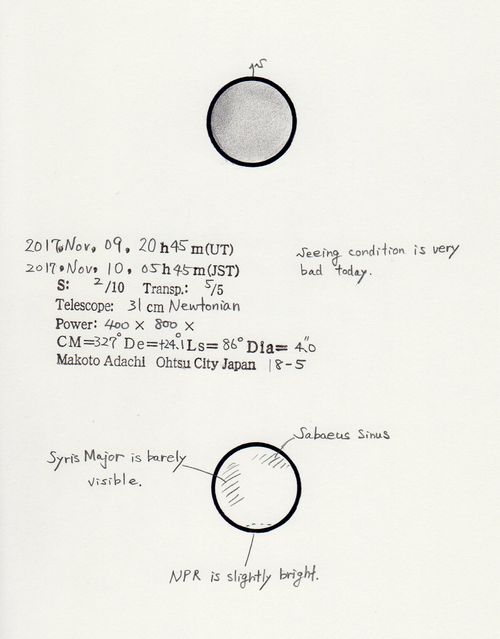 S
2017, Nov. 09, 20h45m(UT)
2017, Nov. 10, 05h45m(JST)
S: 2/10 Transp.: 5/5
Telescope: 31cm Newtonian
Power: 400 × 800 ×
CM=327° De=+24.1° Ls=86° Dia=4.0"
Makoto Adachi Ohtsu City Japan 18-5
Seeing condition is very
bad today.
Sabaeus Sinus
Syris Major is barely
visible.
NPR is slightly bright.